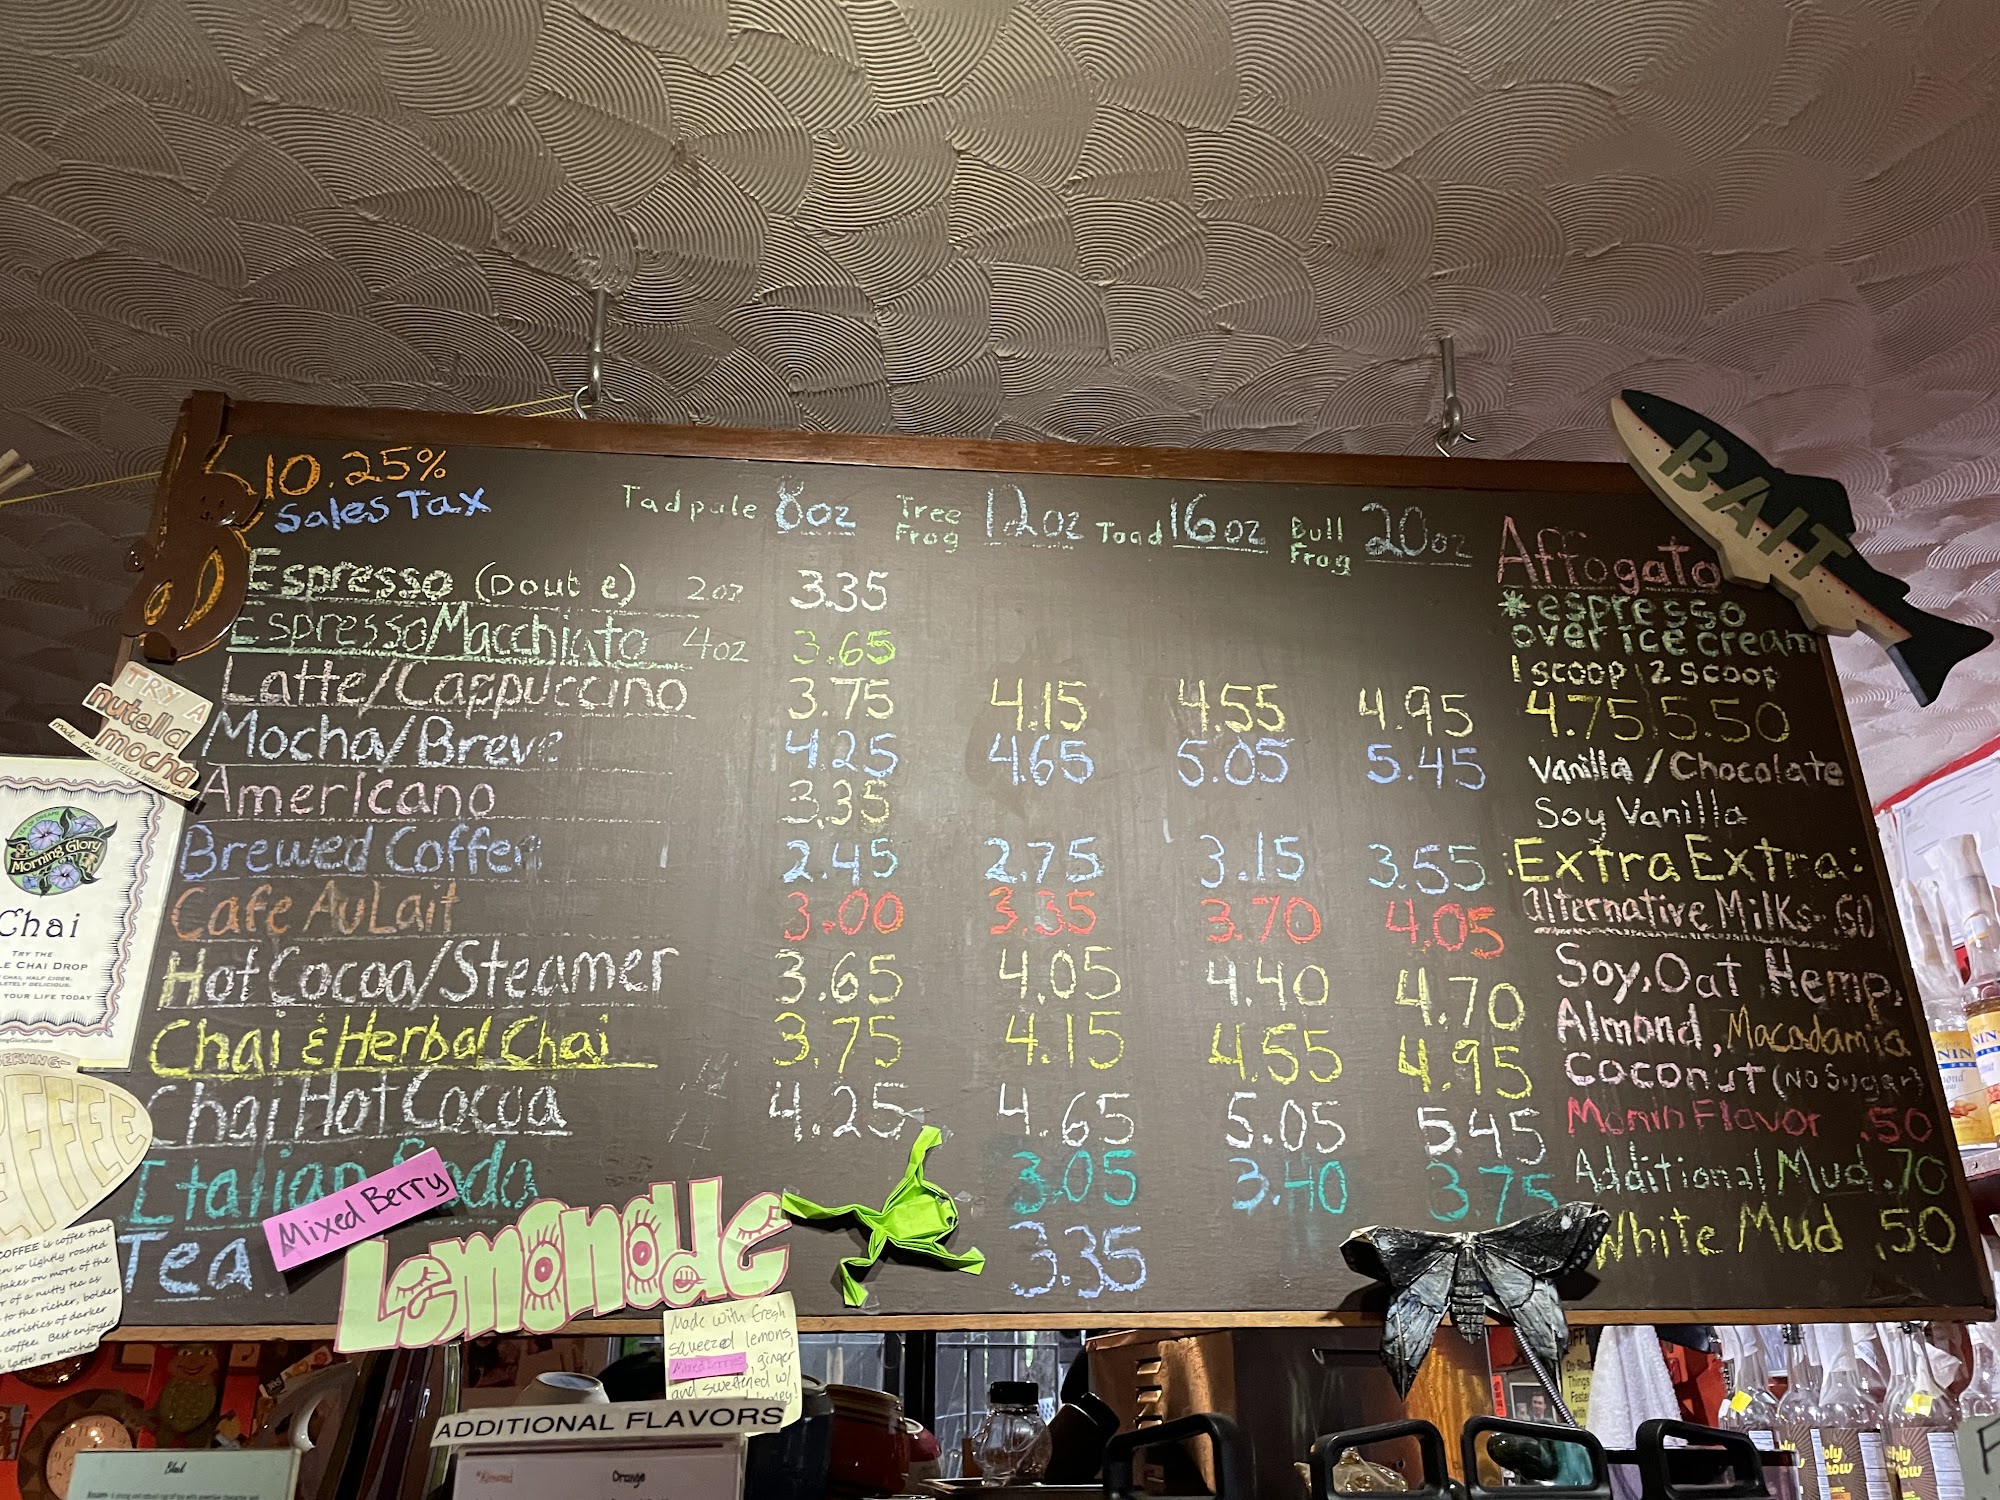 10.25%
Sales Tax
Tadpole 8oz Tree Frog 12oz Toad 16oz Bull Frog 20oz
Espresso (Double) 2oz 3.35
Espresso Macchiato 4oz 3.65
Latte/Cappuccino 3.75 4.15 4.55 4.95
Mocha/Breve 4.25 4.65 5.05 5.45
Americano 3.35
Brewed Coffee 2.45 2.75 3.15 3.55
Cafe Au Lait 3.00 3.35 3.70 4.05
Hot Cocoa/Steamer 3.65 4.05 4.40 4.70
Chai & Herbal Chai 3.75 4.15 4.55 4.95
Chai Hot Cocoa 4.25 4.65 5.05 5.45
Italian Soda 3.05 3.40 3.75
Tea 3.35
BAIT
Affogato
*espresso
over ice cream
1 scoop | 2 scoop
4.75 | 5.50
Vanilla / Chocolate
Soy Vanilla
:Extra Extra:
alternative Milks .60
Soy, Oat, Hemp,
Almond, Macadamia
Coconut (No Sugar)
Monin Flavor .50
Additional Mud .70
White Mud .50
TRY A
nutella
mocha
made from NUTELLA hazelnut spread
Morning Glory
Chai
TRY THE
LE CHAI DROP
CHAI, HALF CIDER,
YOUR LIFE TODAY
SERVING
COFFEE
COFFEE is coffee that
so lightly roasted
takes on more of the
r of a nutty tea as
to the richer, bolder
cteristics of darker
coffee. Best enjoyed
latte' or mocha
Mixed Berry
Lemonade
Made with fresh
squeezed lemons,
Mixed Berries, ginger
and sweetened w/
ADDITIONAL FLAVORS
*Almond Orange